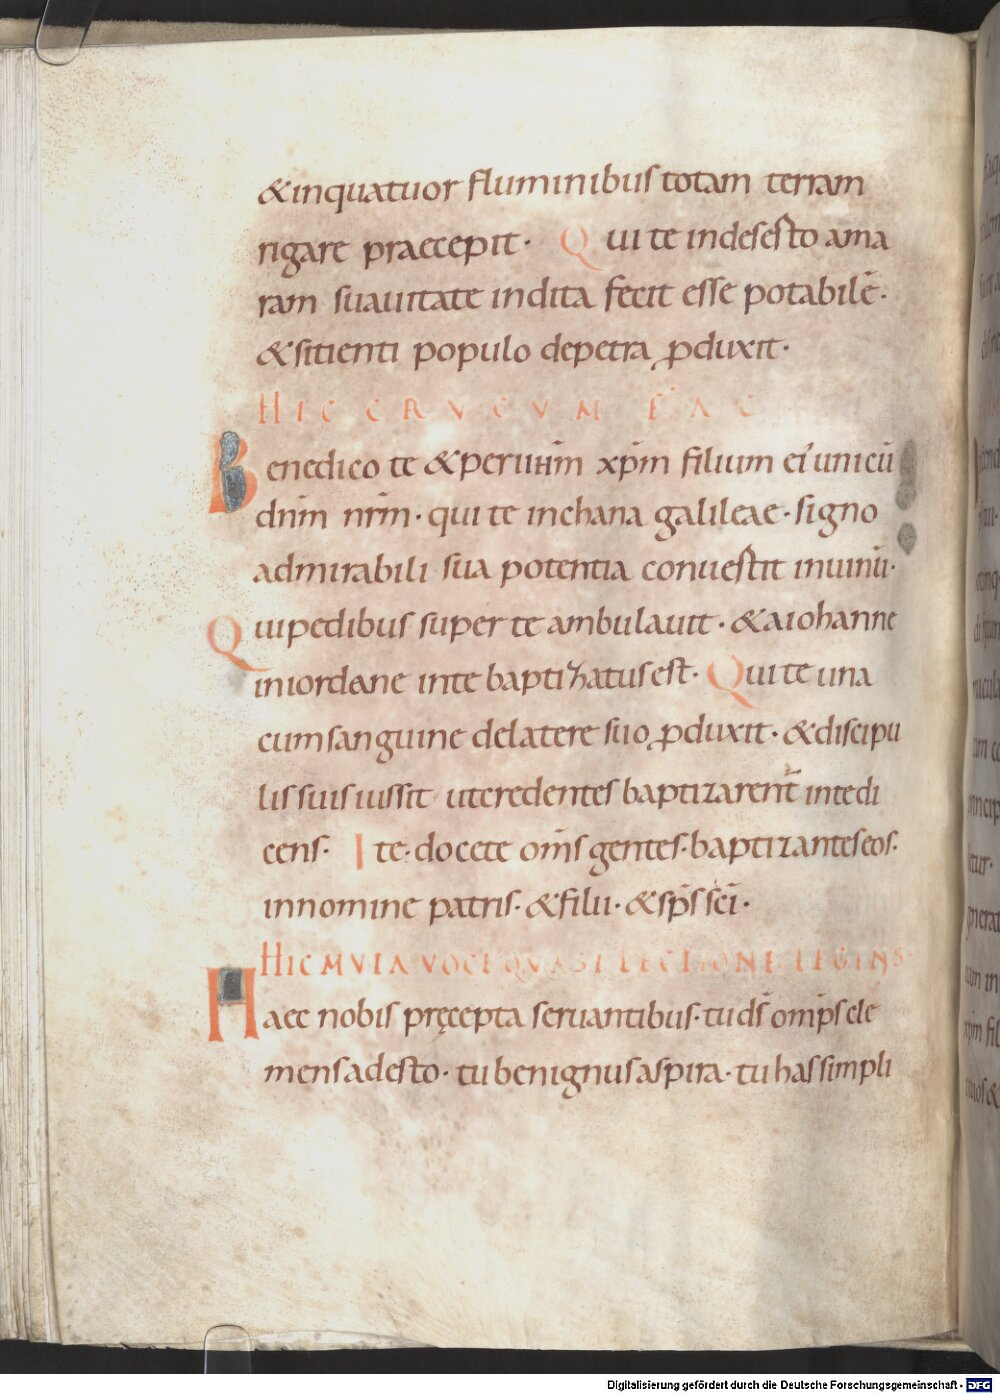 &inquatuor fluminibus totam terram
rigare praecepit· Qui te indeserto ama
ram suauitate indita fecit esse potabilē·
&sitienti populo depetra ꝓduxit·
HIC CRVCVM FAC
Benedico te &per iħm xp̄m filium ei' unicū
dn̄m nr̄m· qui te inchana galileae· signo
admirabili sua potentia conuertit inuinū·
Qui pedibus super te ambulauit· &aiohanne
iniordane inte baptizatus est· Qui te una
cum sanguine delatere suo ꝓduxit· &discipu
lis suis iussit ut credentes baptizarent̄ inte di
cens· Ite· docete om̄s gentes· baptizantes eos·
innomine patris· &filii· &sp̄s sc̄i·
HIC MVTA VOCE QVASI LECTIONE LEGENS
Haec nobis pręcepta seruantibus· tu ds̄ omīps cle
mens adesto· tu benignus aspira· tu has simpli
Digitalisierung gefördert durch die Deutsche Forschungsgemeinschaft - DFG